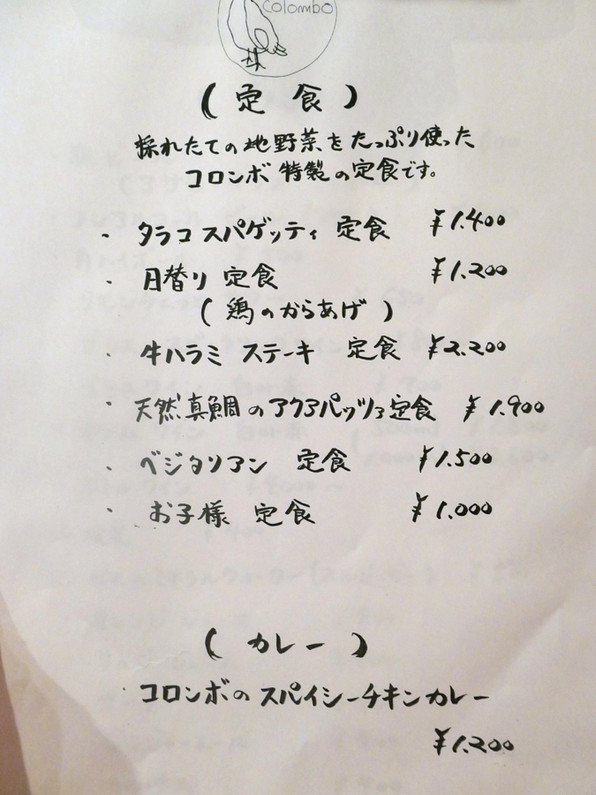 Colombo
( 定食 )
採れたての地野菜をたっぷり使った
コロンボ特製の定食です。
・タラコスパゲッティ 定食 ¥1.400
・日替り 定食 ¥1.200
( 鶏のからあげ )
・牛ハラミ ステーキ 定食 ¥2.200
・天然真鯛のアクアパッツァ定食 ¥1.900
・ベジタリアン 定食 ¥1.500
・お子様 定食 ¥1.000
( カレー )
・コロンボのスパイシーチキンカレー
¥1.200